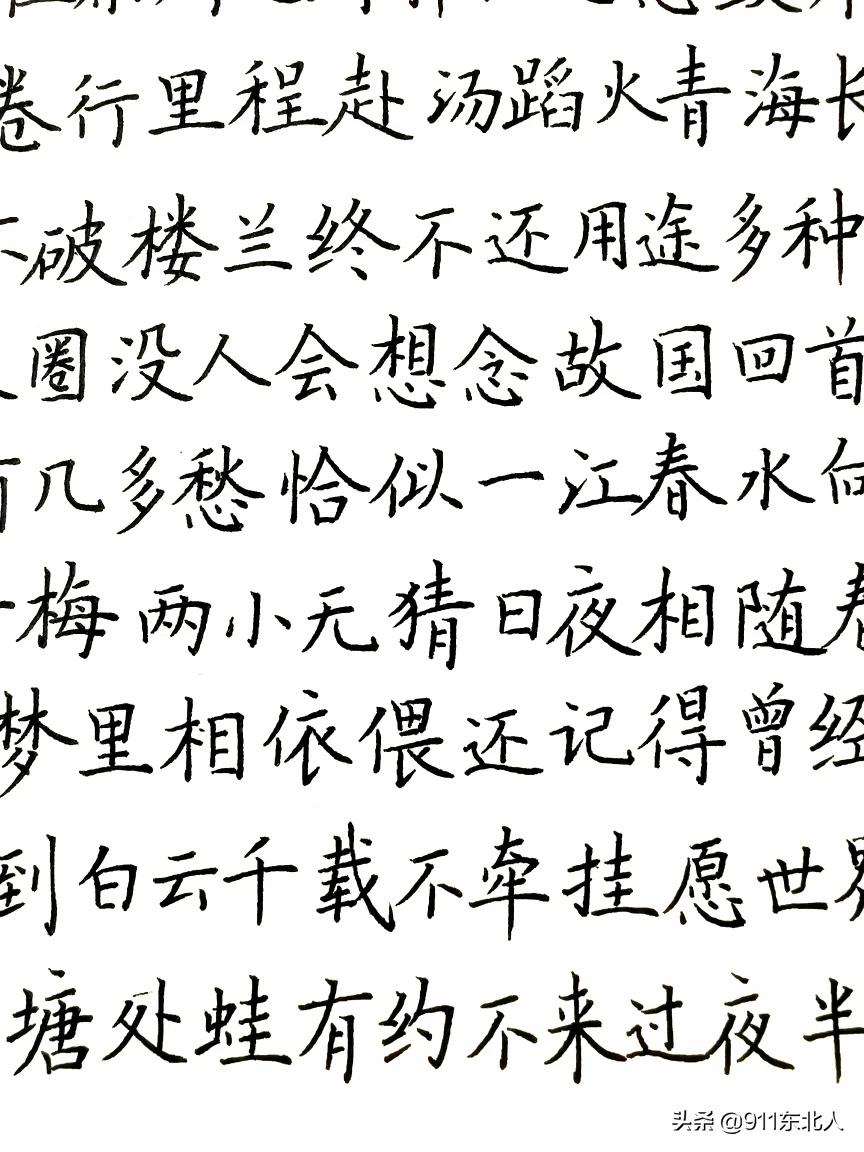 卷行里程赴汤蹈火青海长
不破楼兰终不还用途多种
圈没人会想念故国回首
有几多愁恰似一江春水向
梅两小无猜日夜相随春
梦里相依偎还记得曾经
到白云千载不牵挂愿世界
塘处蛙有约不来过夜半
头条 @911东北人